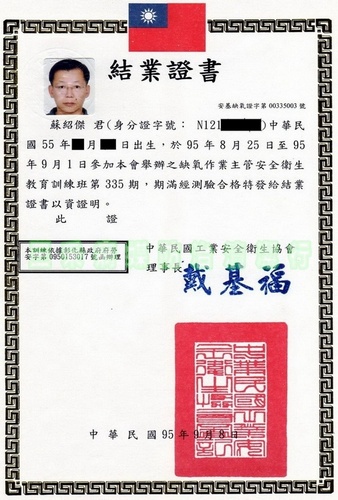 結業證書
安基缺氧證字第00335003號
蘇紹傑 君(身分證字號: N121 )中華民
國55年 月 日出生,於95年8月25日至95
年9月1日參加本會舉辦之缺氧作業主管安全衛生
教育訓練班第335期,期滿經測驗合格特發給結業
證書以資證明。
此 證
本訓練依據彰化縣政府府勞
安字第0950153017號函辦理
中華民國工業安全衛生協會
理事長 戴基福
中華民國95年9月8日